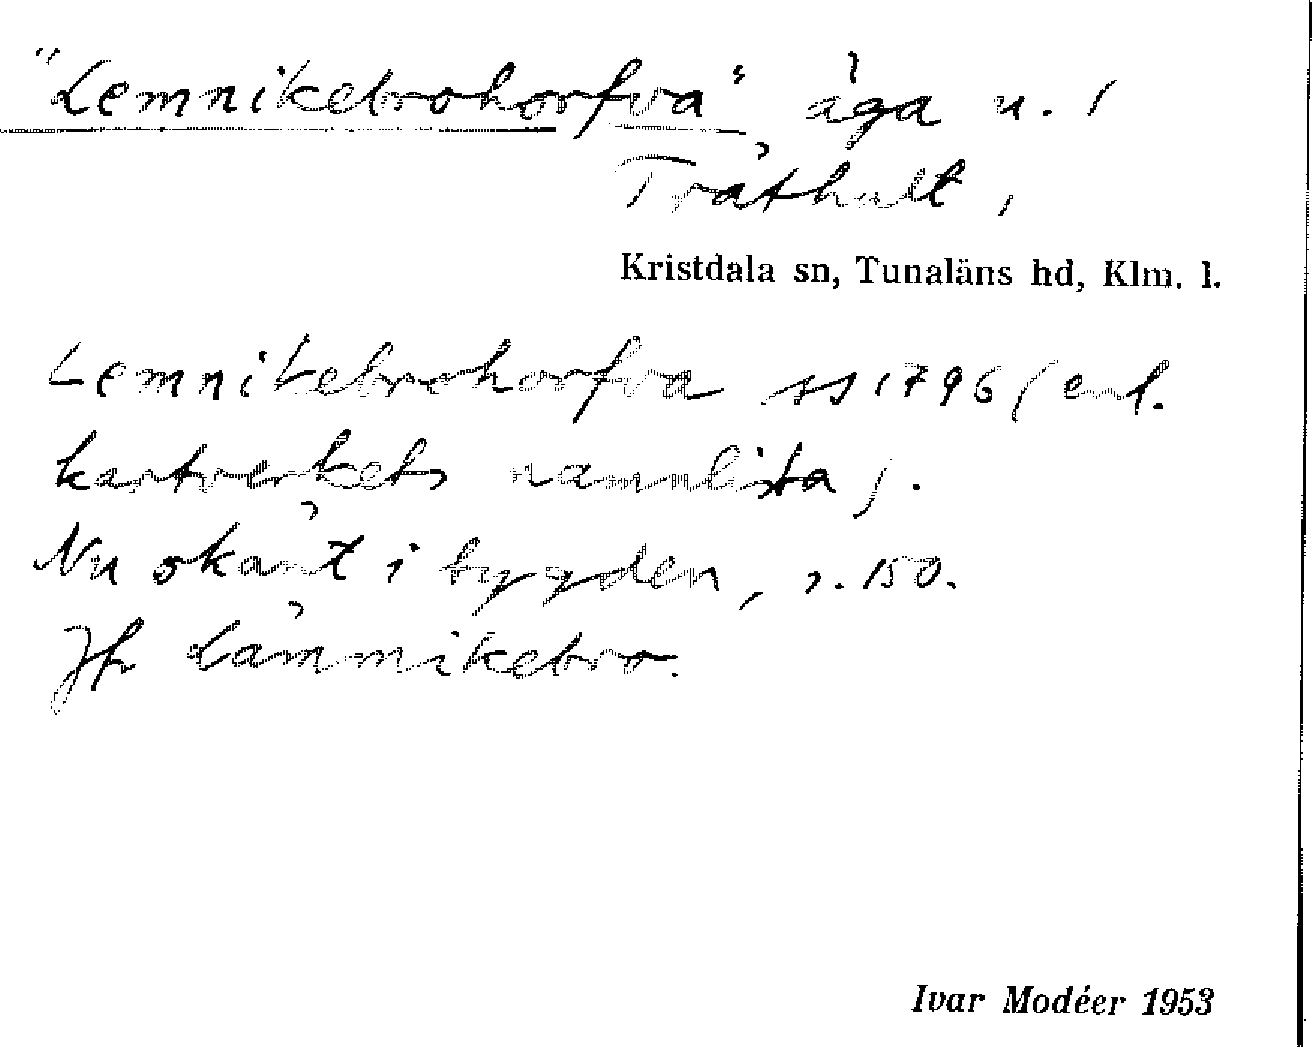 "Lemnikebrohorfva" äga u. /
Träthult,
Kristdala sn, Tunaläns hd, Klm. l.
Lemnikebrohorfva ss 1796 (enl.
kartverkets namnlista).
Nu okänt i bygden, s. 150.
Jfr Lämmikebro.
Ivar Modéer 1953